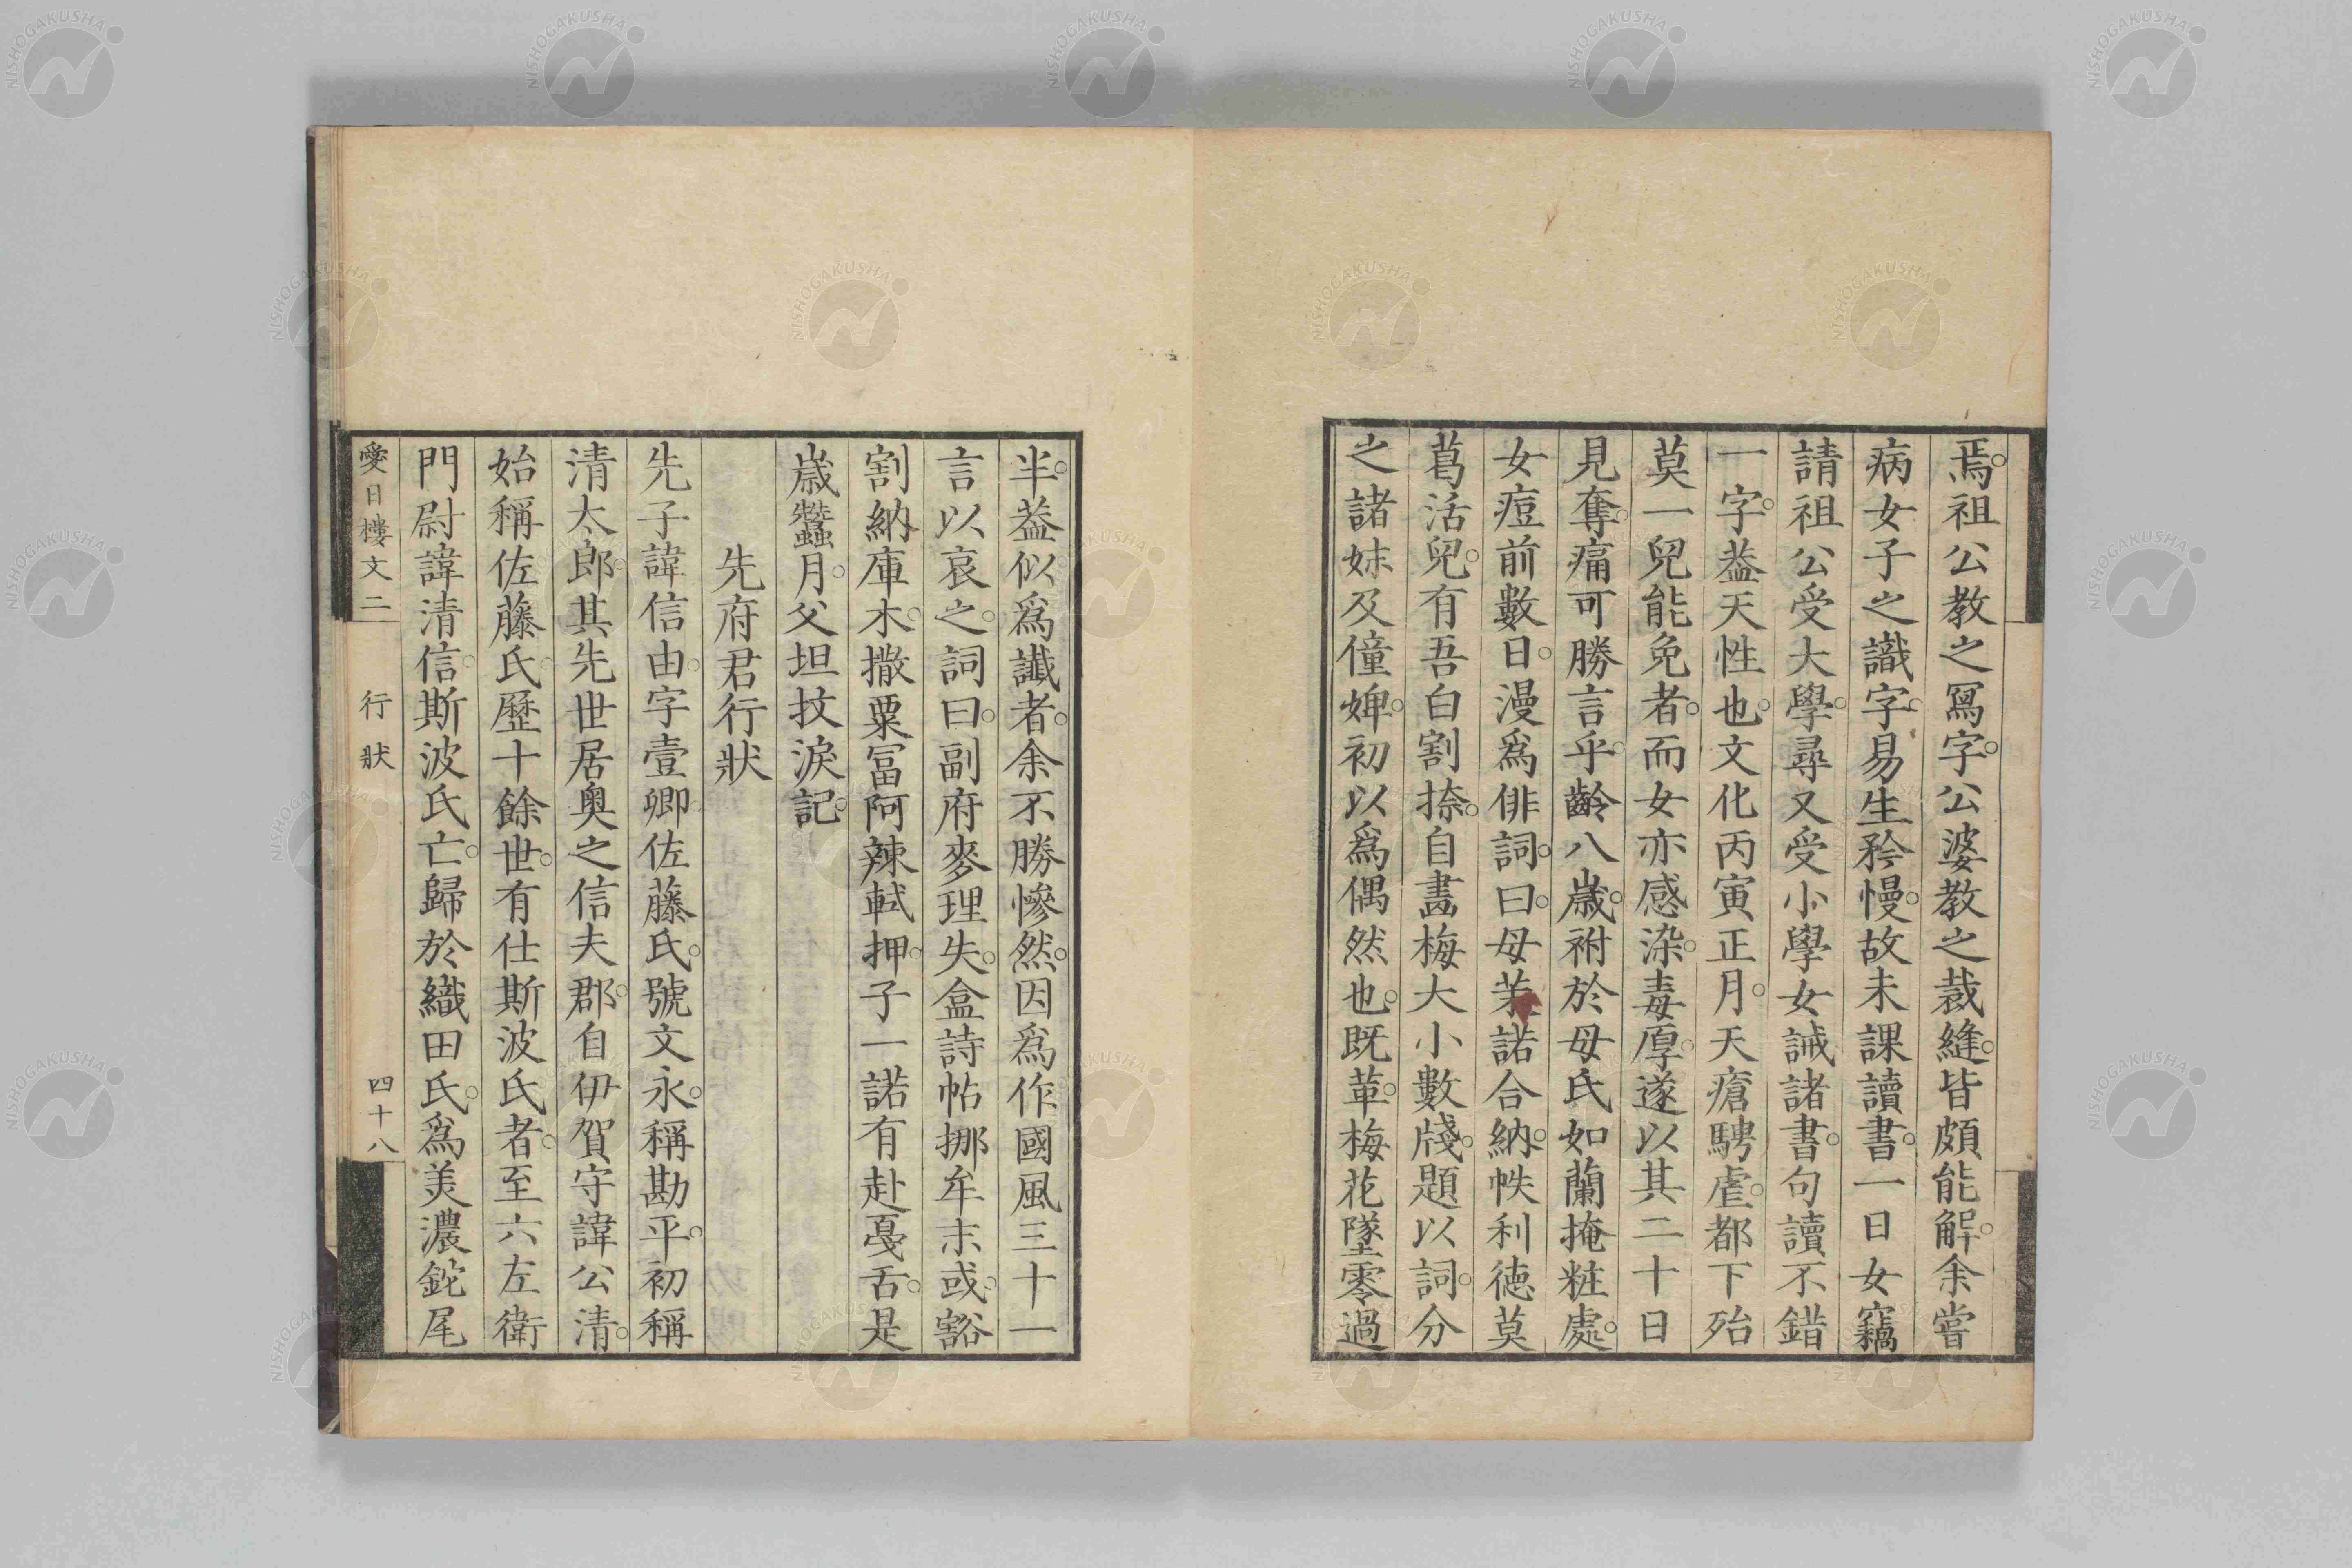 焉。祖公教之冩字。公婆教之裁縫。皆頗能解。余嘗
病女子之識字。易生矜慢。故未課讀書。一日女竊
請祖公受大學。尋又受小學女誡諸書。句讀不錯
一字。葢天性也。文化丙寅正月。天瘡騁虐。都下殆
莫一兒能免者。而女亦感染。毒厚。遂以其二十日
見奪。痛可勝言乎。齡八歳。祔於母氏如蘭掩粧處。
女痘前數日。漫爲俳詞。曰。母茉諾合納。帙利德莫
葛活兒。有吾白割捺。自畵梅大小數牋。題以詞。分
之諸妹及僮婢。初以爲偶然也。既革。梅花墜零過
半。葢似爲讖者。余不勝慘然。因爲作國風三十一
言以哀之。詞曰。副府麥理失。盒詩帖挪牟末或。豁
割納庫木。撒粟冨阿辣軾押。子一諾有赴戞舌。是
歳蠶月。父坦抆淚記。
先府君行狀
先子諱信由。字壹卿。佐藤氏。號文永。稱勘平。初稱
清太郎。其先世居奥之信夫郡。自伊賀守諱公清。
始稱佐藤氏。歷十餘世。有仕斯波氏者。至六左衛
門尉諱清信。斯波氏亡。歸於織田氏。爲美濃鉈尾
愛日樓文二 行狀 四十八
NISHOGAKUSHA